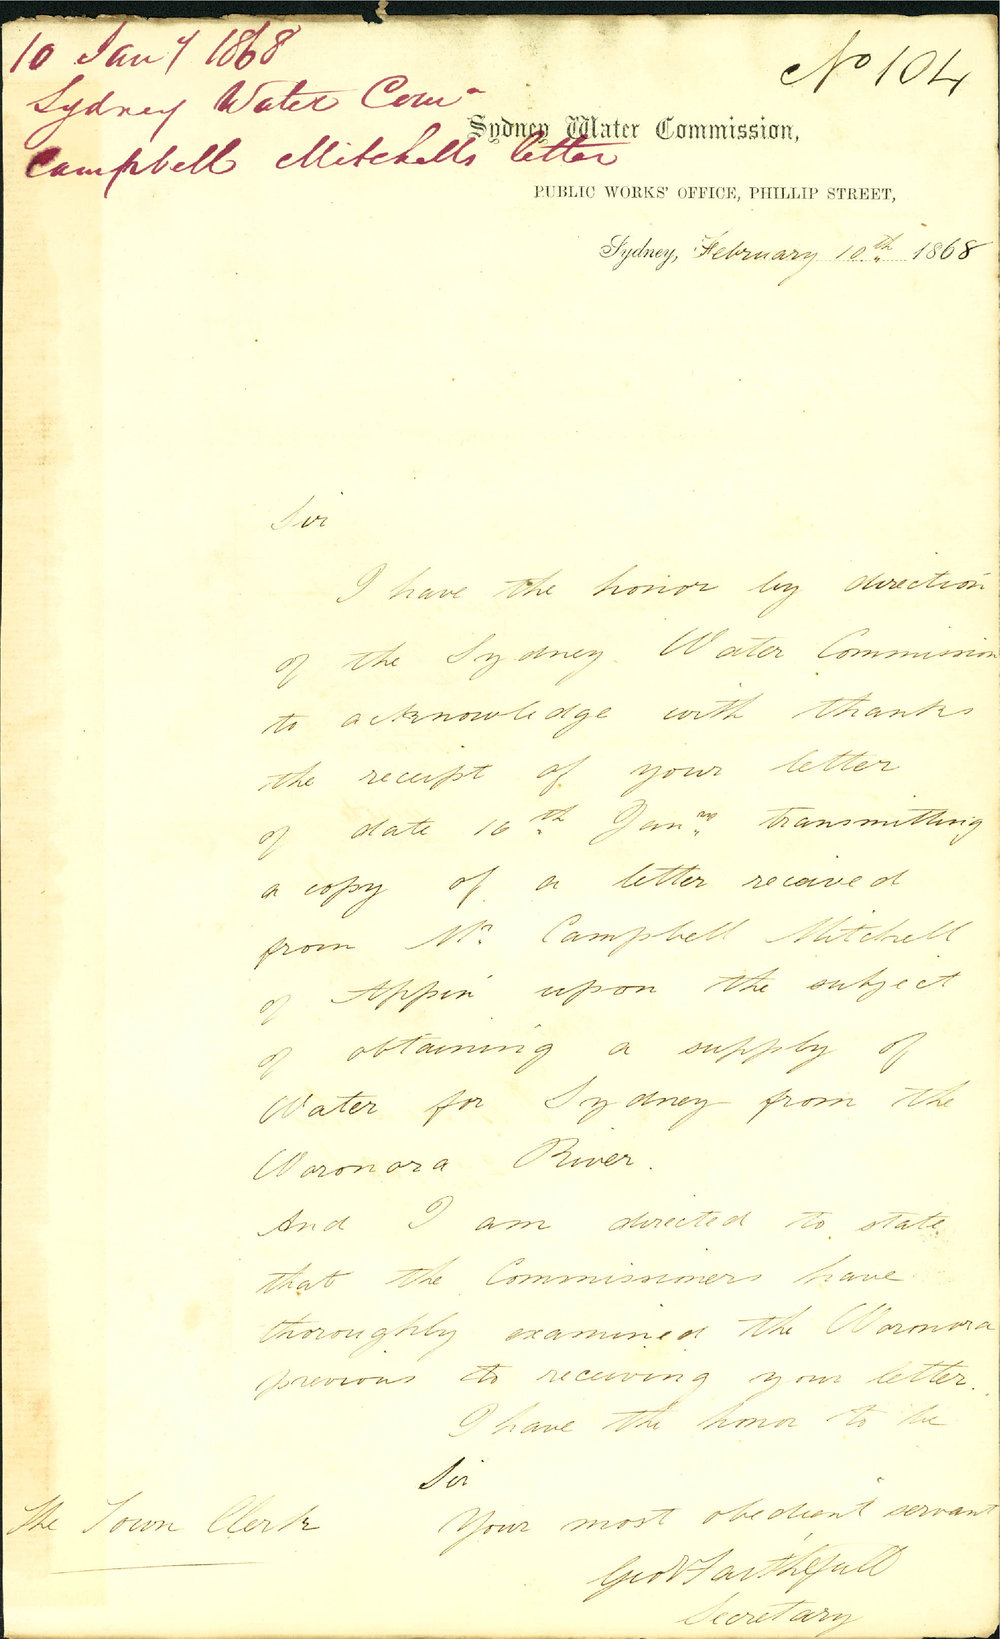 10 Jany 1868
Sydney Water Com
Campbell Mitchells letter
No 104
Sydney Water Commission,
PUBLIC WORKS' OFFICE, PHILLIP STREET,
Sydney, February 10th 1868
Sir
I have the honor by direction
of the Sydney Water Commission
to acknowledge with thanks
the receipt of your letter
of date 10th Jany transmitting
a copy of a letter received
from Mr. Campbell Mitchell
of Appin upon the subject
of obtaining a supply of
Water for Sydney from the
Woronora River.
And I am directed to state
that the Commissioners have
thoroughly examined the Woronora
previous to receiving your letter.
I have the honor to be
Sir
Your most obedient servant
Geo W Faithfull
Secretary
The Town Clerk